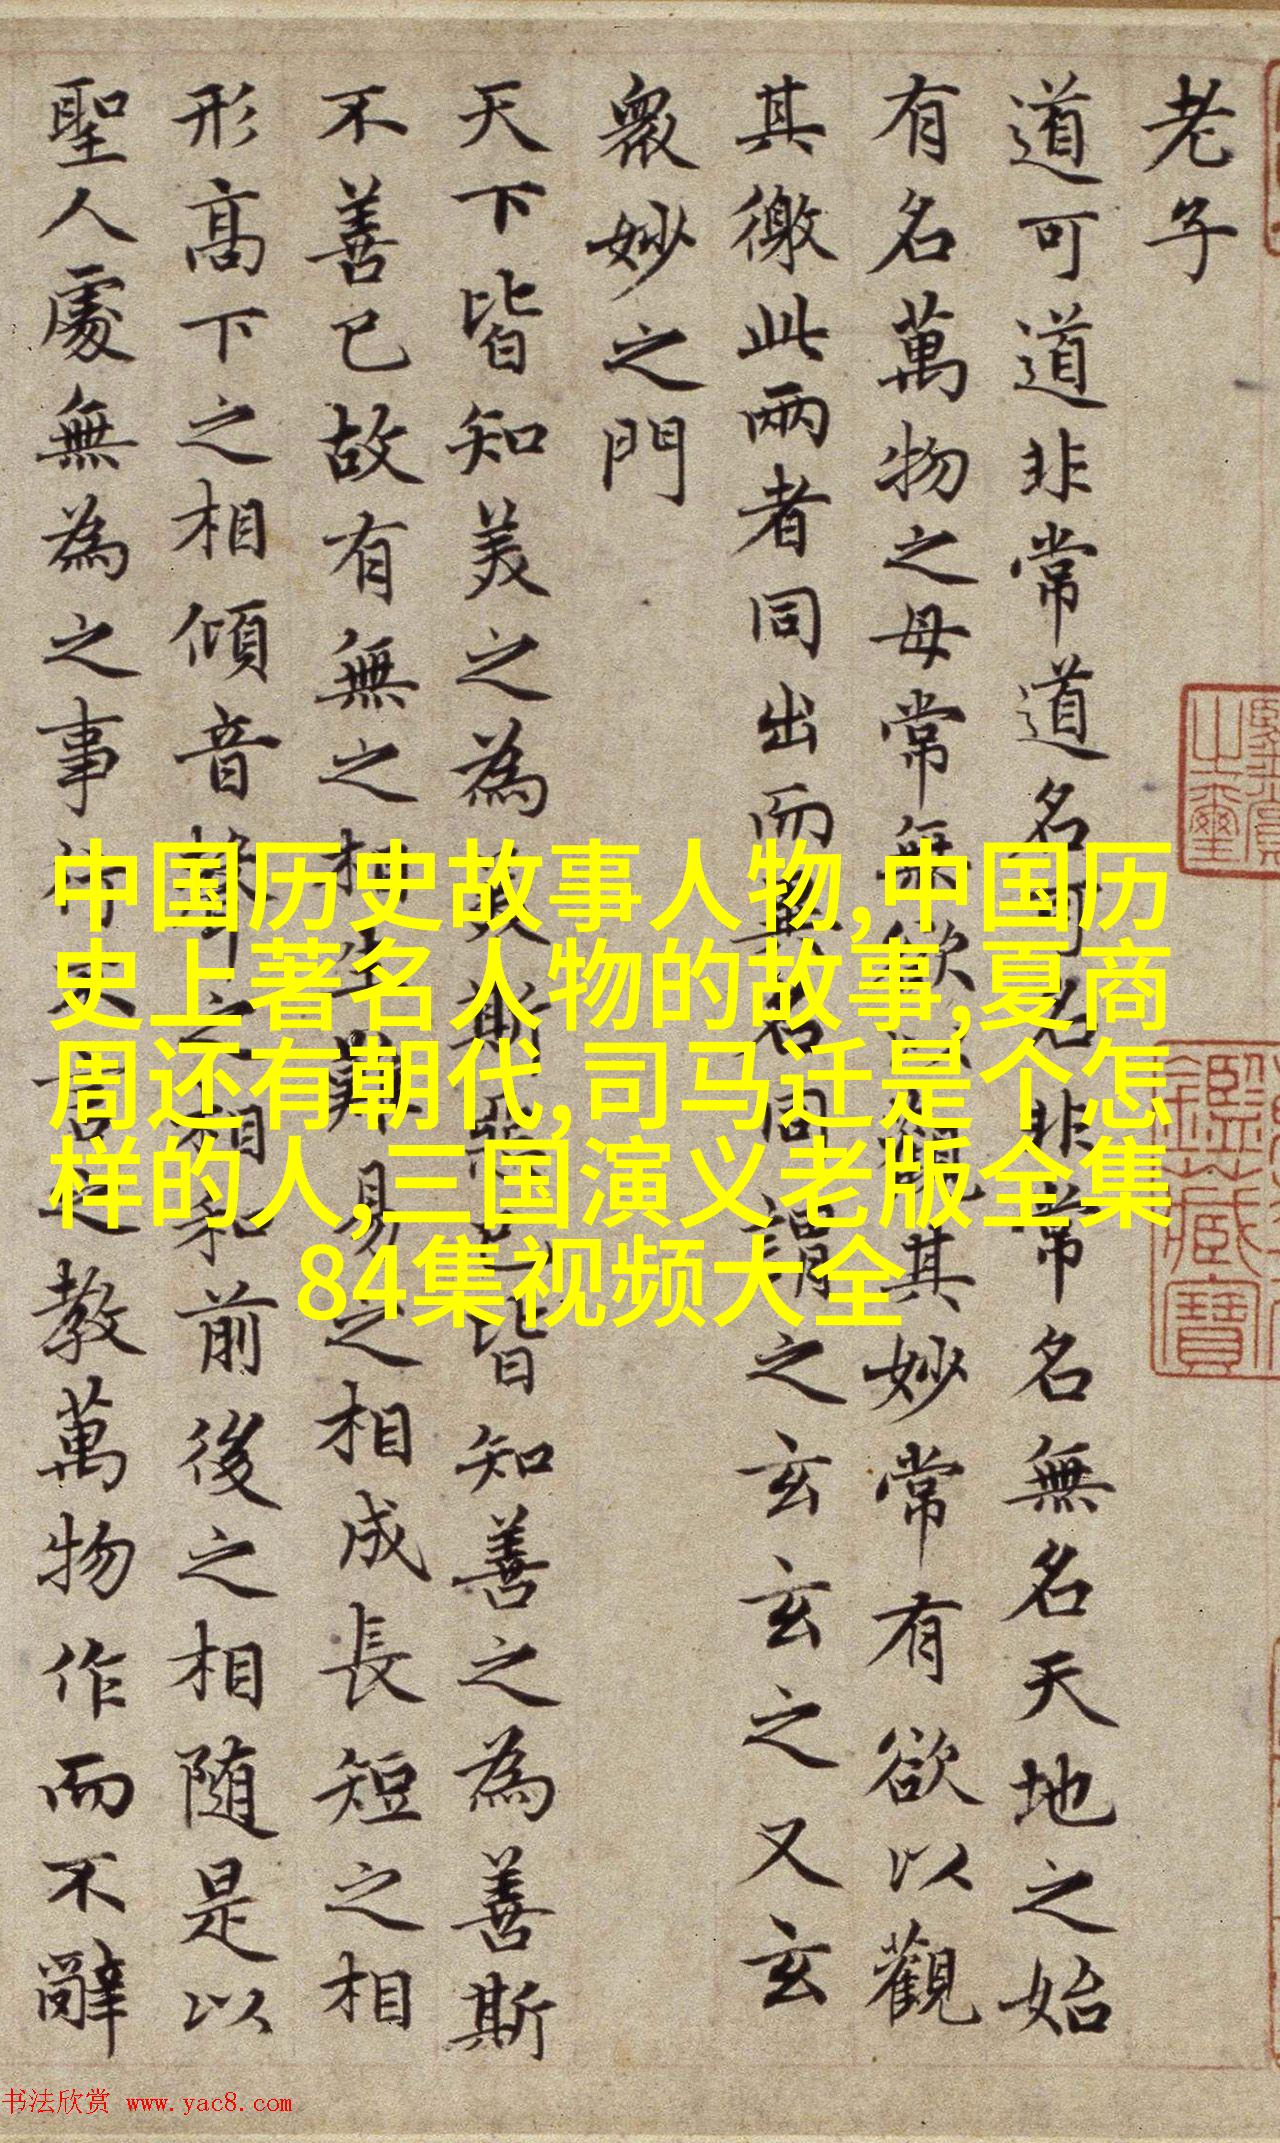 老子
道可道非常道名可名非常名無名天地之始
有名萬物之母常無欲以觀其妙常有欲以觀
其徼此兩者同出而異名同謂之玄玄之又玄
衆妙之門
天下皆知美之為美斯惡已皆知善之為善斯
不善已故有無之相生難易之相成長短之相
形高下之相傾音聲之相和前後之相随是以
聖人處無為之事行不言之教萬物作而不辭
中国历史故事人物,中国历
史上著名人物的故事,夏商
周还有朝代,司马迁是个怎
样的人,三国演义老版全集
84集视频大全
之璽
鑑藏寶
书法欣赏 www.yac8.com